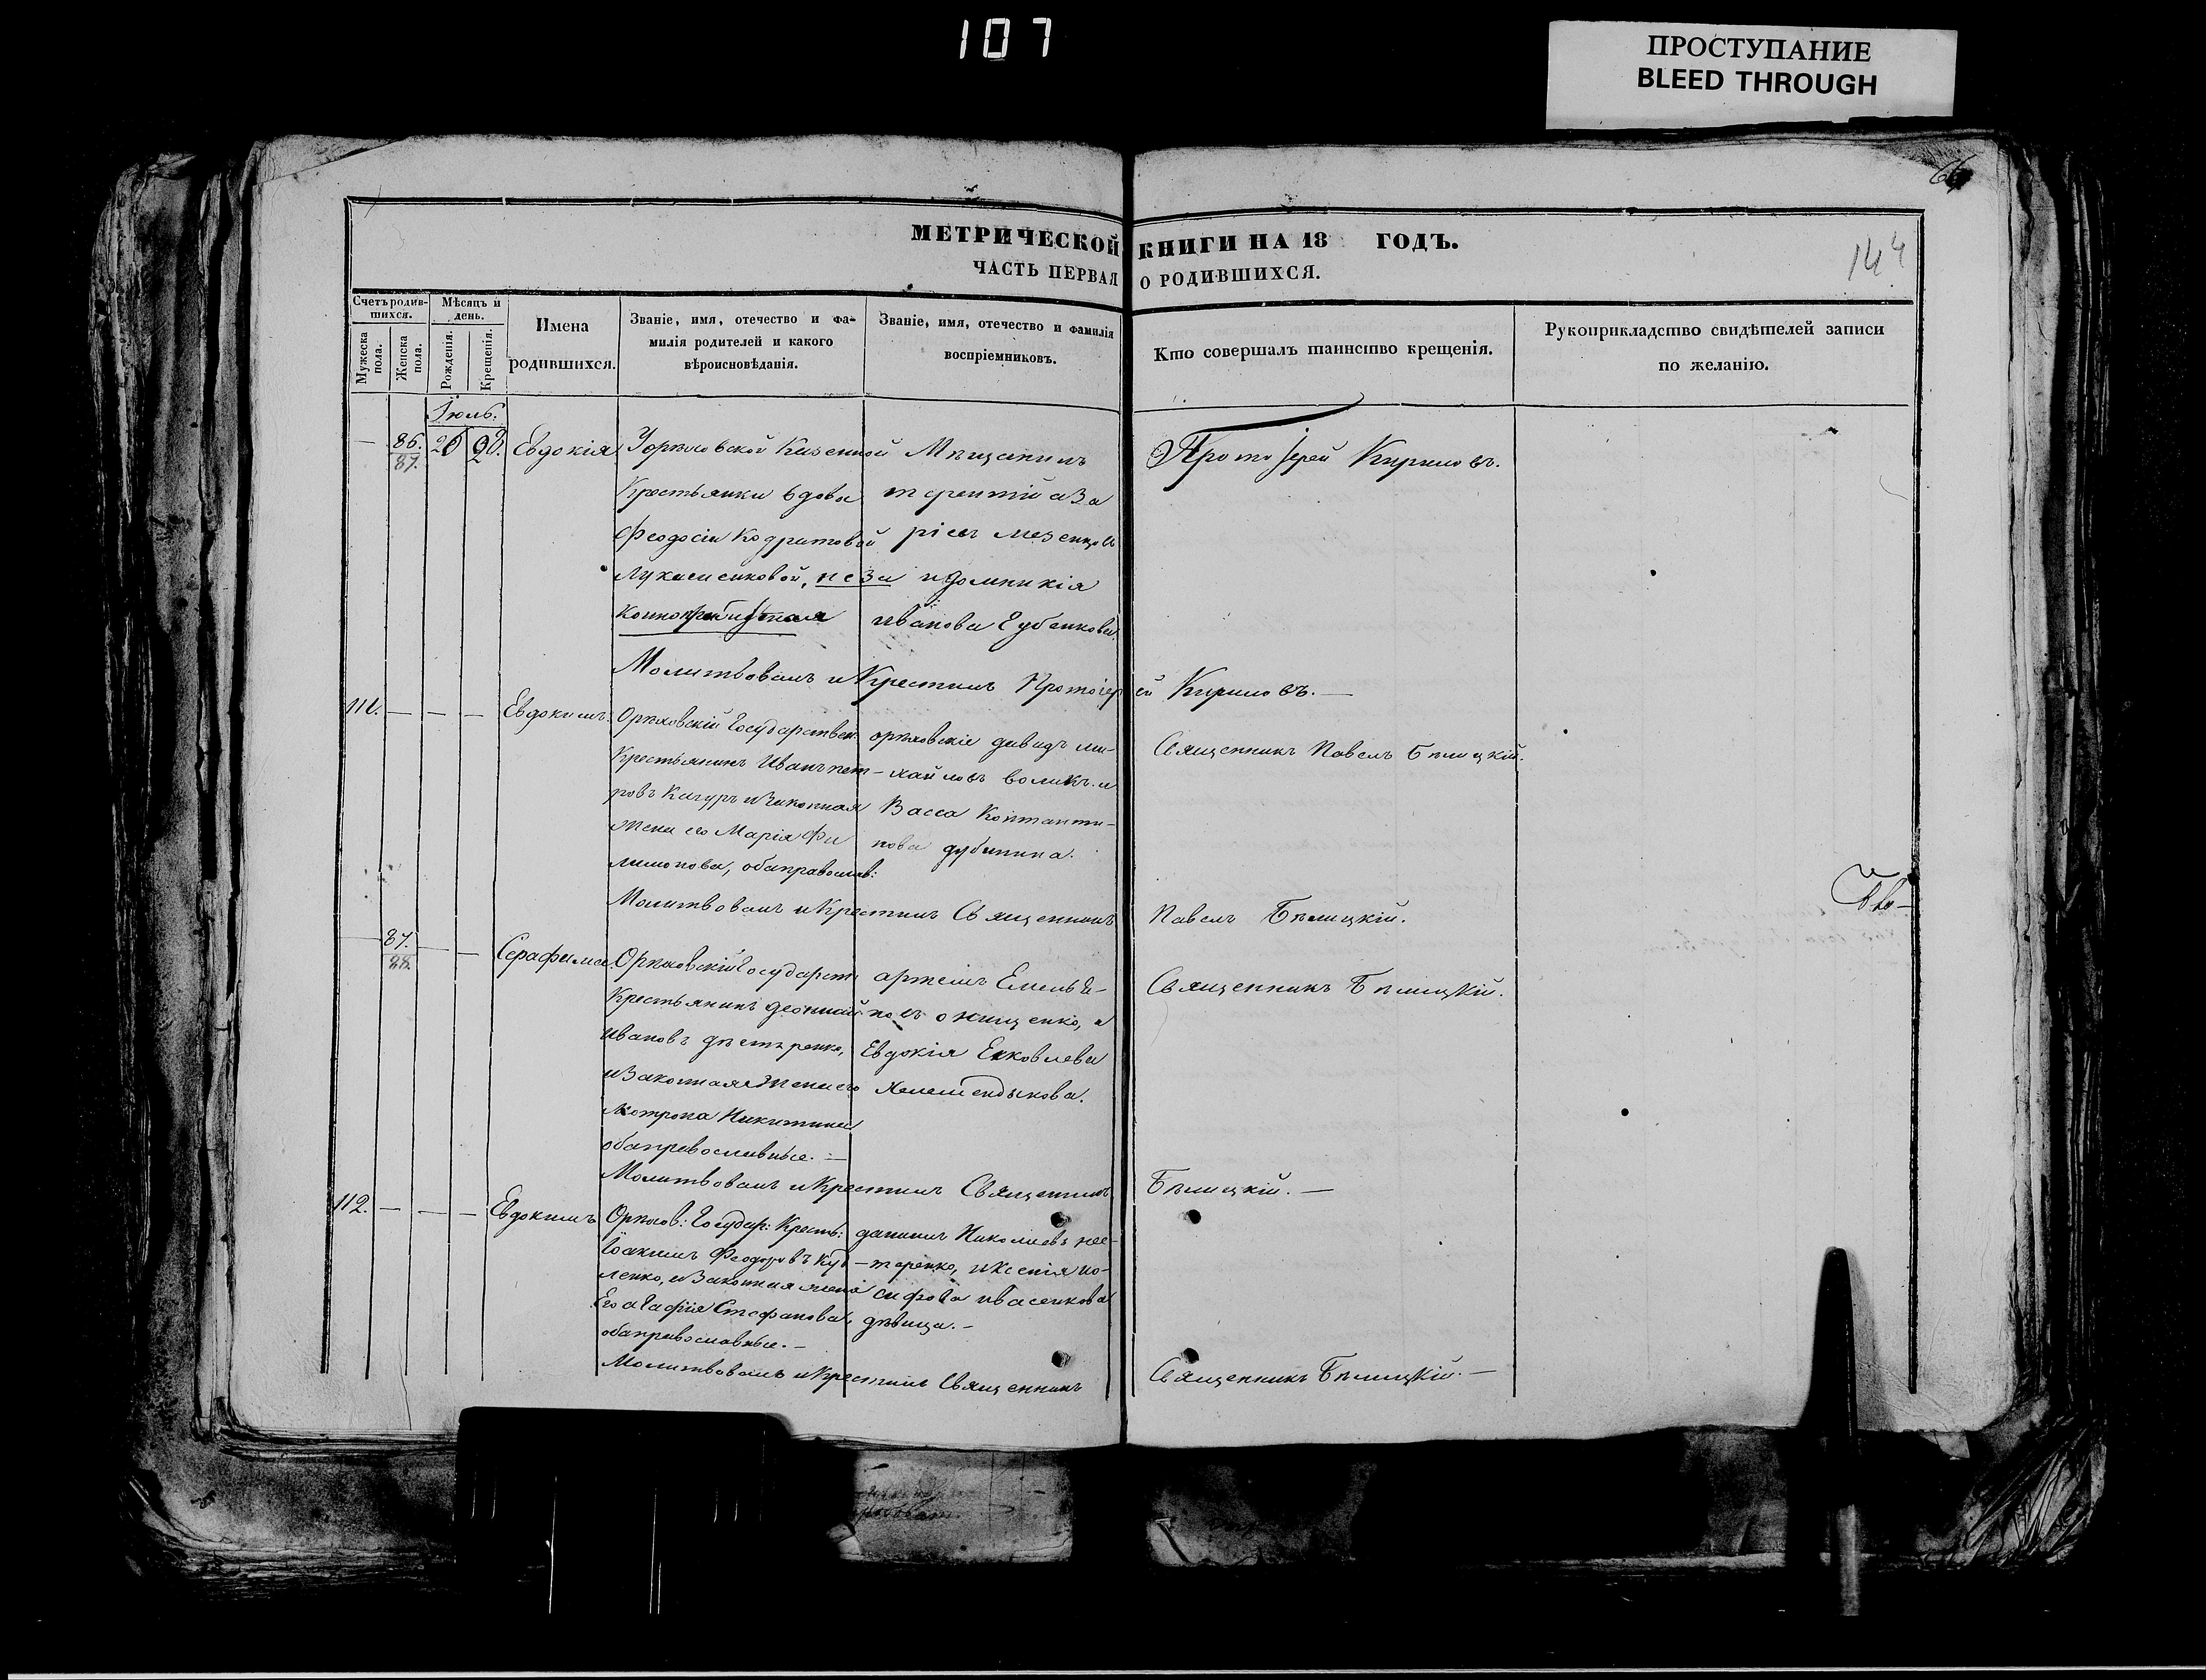 107
ПРОСТУПАНИЕ
BLEED THROUGH
МЕТРИЧЕСКОЙ КНИГИ НА 18 ГОДЪ.
144
ЧАСТЬ ПЕРВАЯ О РОДИВШИХСЯ.
Счетъ родив-
шихся.
Мужеска пола.
Женска пола.
Мѣсяцъ и
день.
Рожденія.
Крещенія.
Имена
родившихся.
Званіе, имя, отечество и фа-
милія родителей и какого
вѣроисповѣданія.
Званіе, имя, отечество и фамилія
воспріемниковъ.
Кто совершалъ таинство крещенія.
Рукоприкладство свидѣтелей записи
по желанію.
Іюль.
— 86. 26 28. Евдокія
87.
Казенной
Крестьянки вдовы
Феодосіи Кодратовой
не за
Мѣщанинъ
терентій аза
ріевъ мезенцовъ
и домникія
иванова Губенкова.
Протоіерей Кириловъ.
Молитвовалъ и Крестилъ Протоіерей Кириловъ. —
111. — — — Евдокимъ.
Орѣховскій Государствен:
Крестьянинъ Иванъ пет-
ровъ Качуръ и Законная
Жена его Марія Фи
лимонова, обаправослав:
орѣховскіе давидъ ми-
хайловъ воликъ. и
Васса Константи-
нова дубинина.
Священникъ Павелъ Бѣлицкій.
Молитвовалъ и Крестилъ Священникъ Павелъ Бѣлицкій.
— 87. — — Серафима.
88.
Орѣховскій Государст
Крестьянинъ
ивановъ
и Законная Жена его
Мотрона Никитина
обаправославные. —
артемъ Емелья-
новъ онищенко, и
Евдокія Еяковлева
Священникъ Бѣлицкій.
Молитвовалъ и Крестилъ Священникъ Бѣлицкій. —
112. — — — Евдокимъ
Орѣхов: Государ: Кресть:
Іоакимъ Феодоровъ Куд
ленко, и Законная жена
Его агафія Стефанова,
обаправославные. —
данилъ Николаевъ нес-
теренко, и Ксенія ио-
сифова ивасенкова
дѣвица. —
Молитвовалъ и Крестилъ Священникъ
Священникъ Бѣлицкій. —